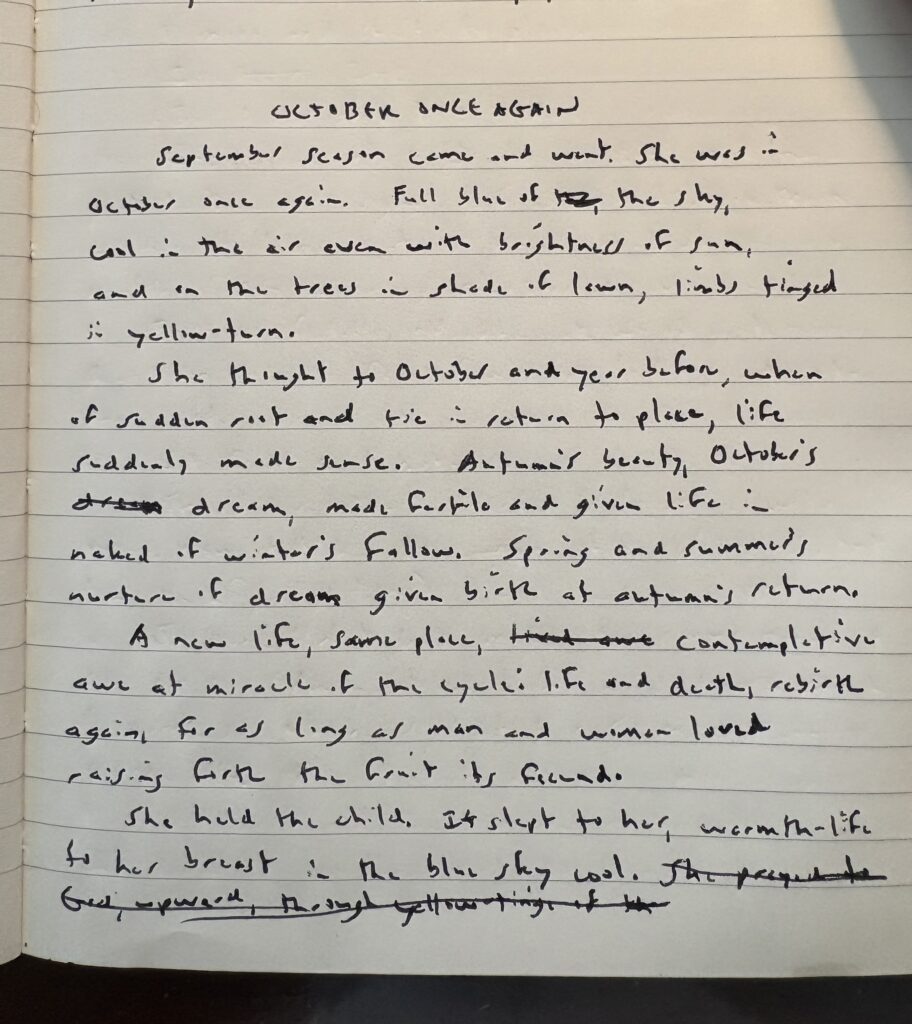 OCTOBER ONCE AGAIN
September season came and went. She was in
October once again. Full blue of the sky,
cool in the air even with brightness of sun,
and on the trees in shade of lawn, limbs tinged
in yellow-turn.
She thought to October and year before, when
of sudden root and tie in return to place, life
suddenly made sense. Autumn's beauty, October's
dream dream, made fertile and given life in
naked of winter's fallow. Spring and summer's
nurture of dream given birth at autumn's return.
A new life, same place, lived awe contemplative
awe at miracle of the cycle: life and death, rebirth
again, for as long as man and woman loved
raising forth the fruit its fecund.
She held the child. It slept to her, warmth-life
to her breast in the blue sky cool. She prayed to
God, upward, through yellow-tinge of the